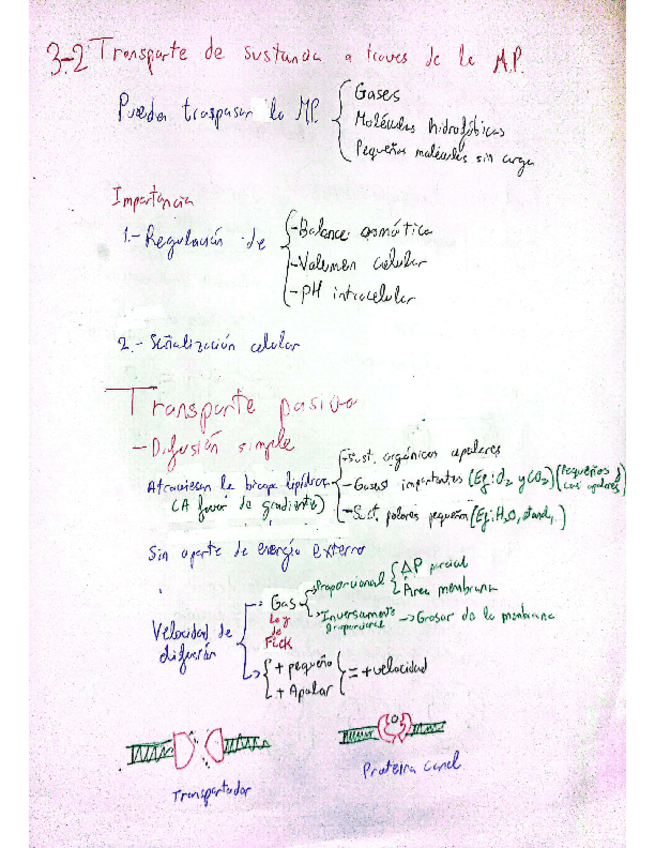 3-2 Transporte de sustancia a traves de la M.P.
Pueden traspasar la MP.
Gases
Moléculas hidrofóbicas
Pequeñas moléculas sin carga
Importancia
1.- Regulación de
- Balance osmótico
- Volumen celular
- pH intracelular
2.- Señalización celular
Transporte pasivo
- Difusión simple
Atraviesan la bicapa lipídica
(A favor de gradiente)
- Sust. orgánicas apolares
- Gases importantes (Ej: O2 y CO2) (Pequeños y casi apolares)
- Sust. polares pequeñas (Ej: H2O,
Sin aporte de energía externo
Velocidad de difusión
Gas
Ley de Fick
Proporcional
ΔP parcial
Área membrana
Inversamente proporcional -> Grosor de la membrana
+ pequeño
+ Apolar
= + velocidad
Transportador
Proteína canal